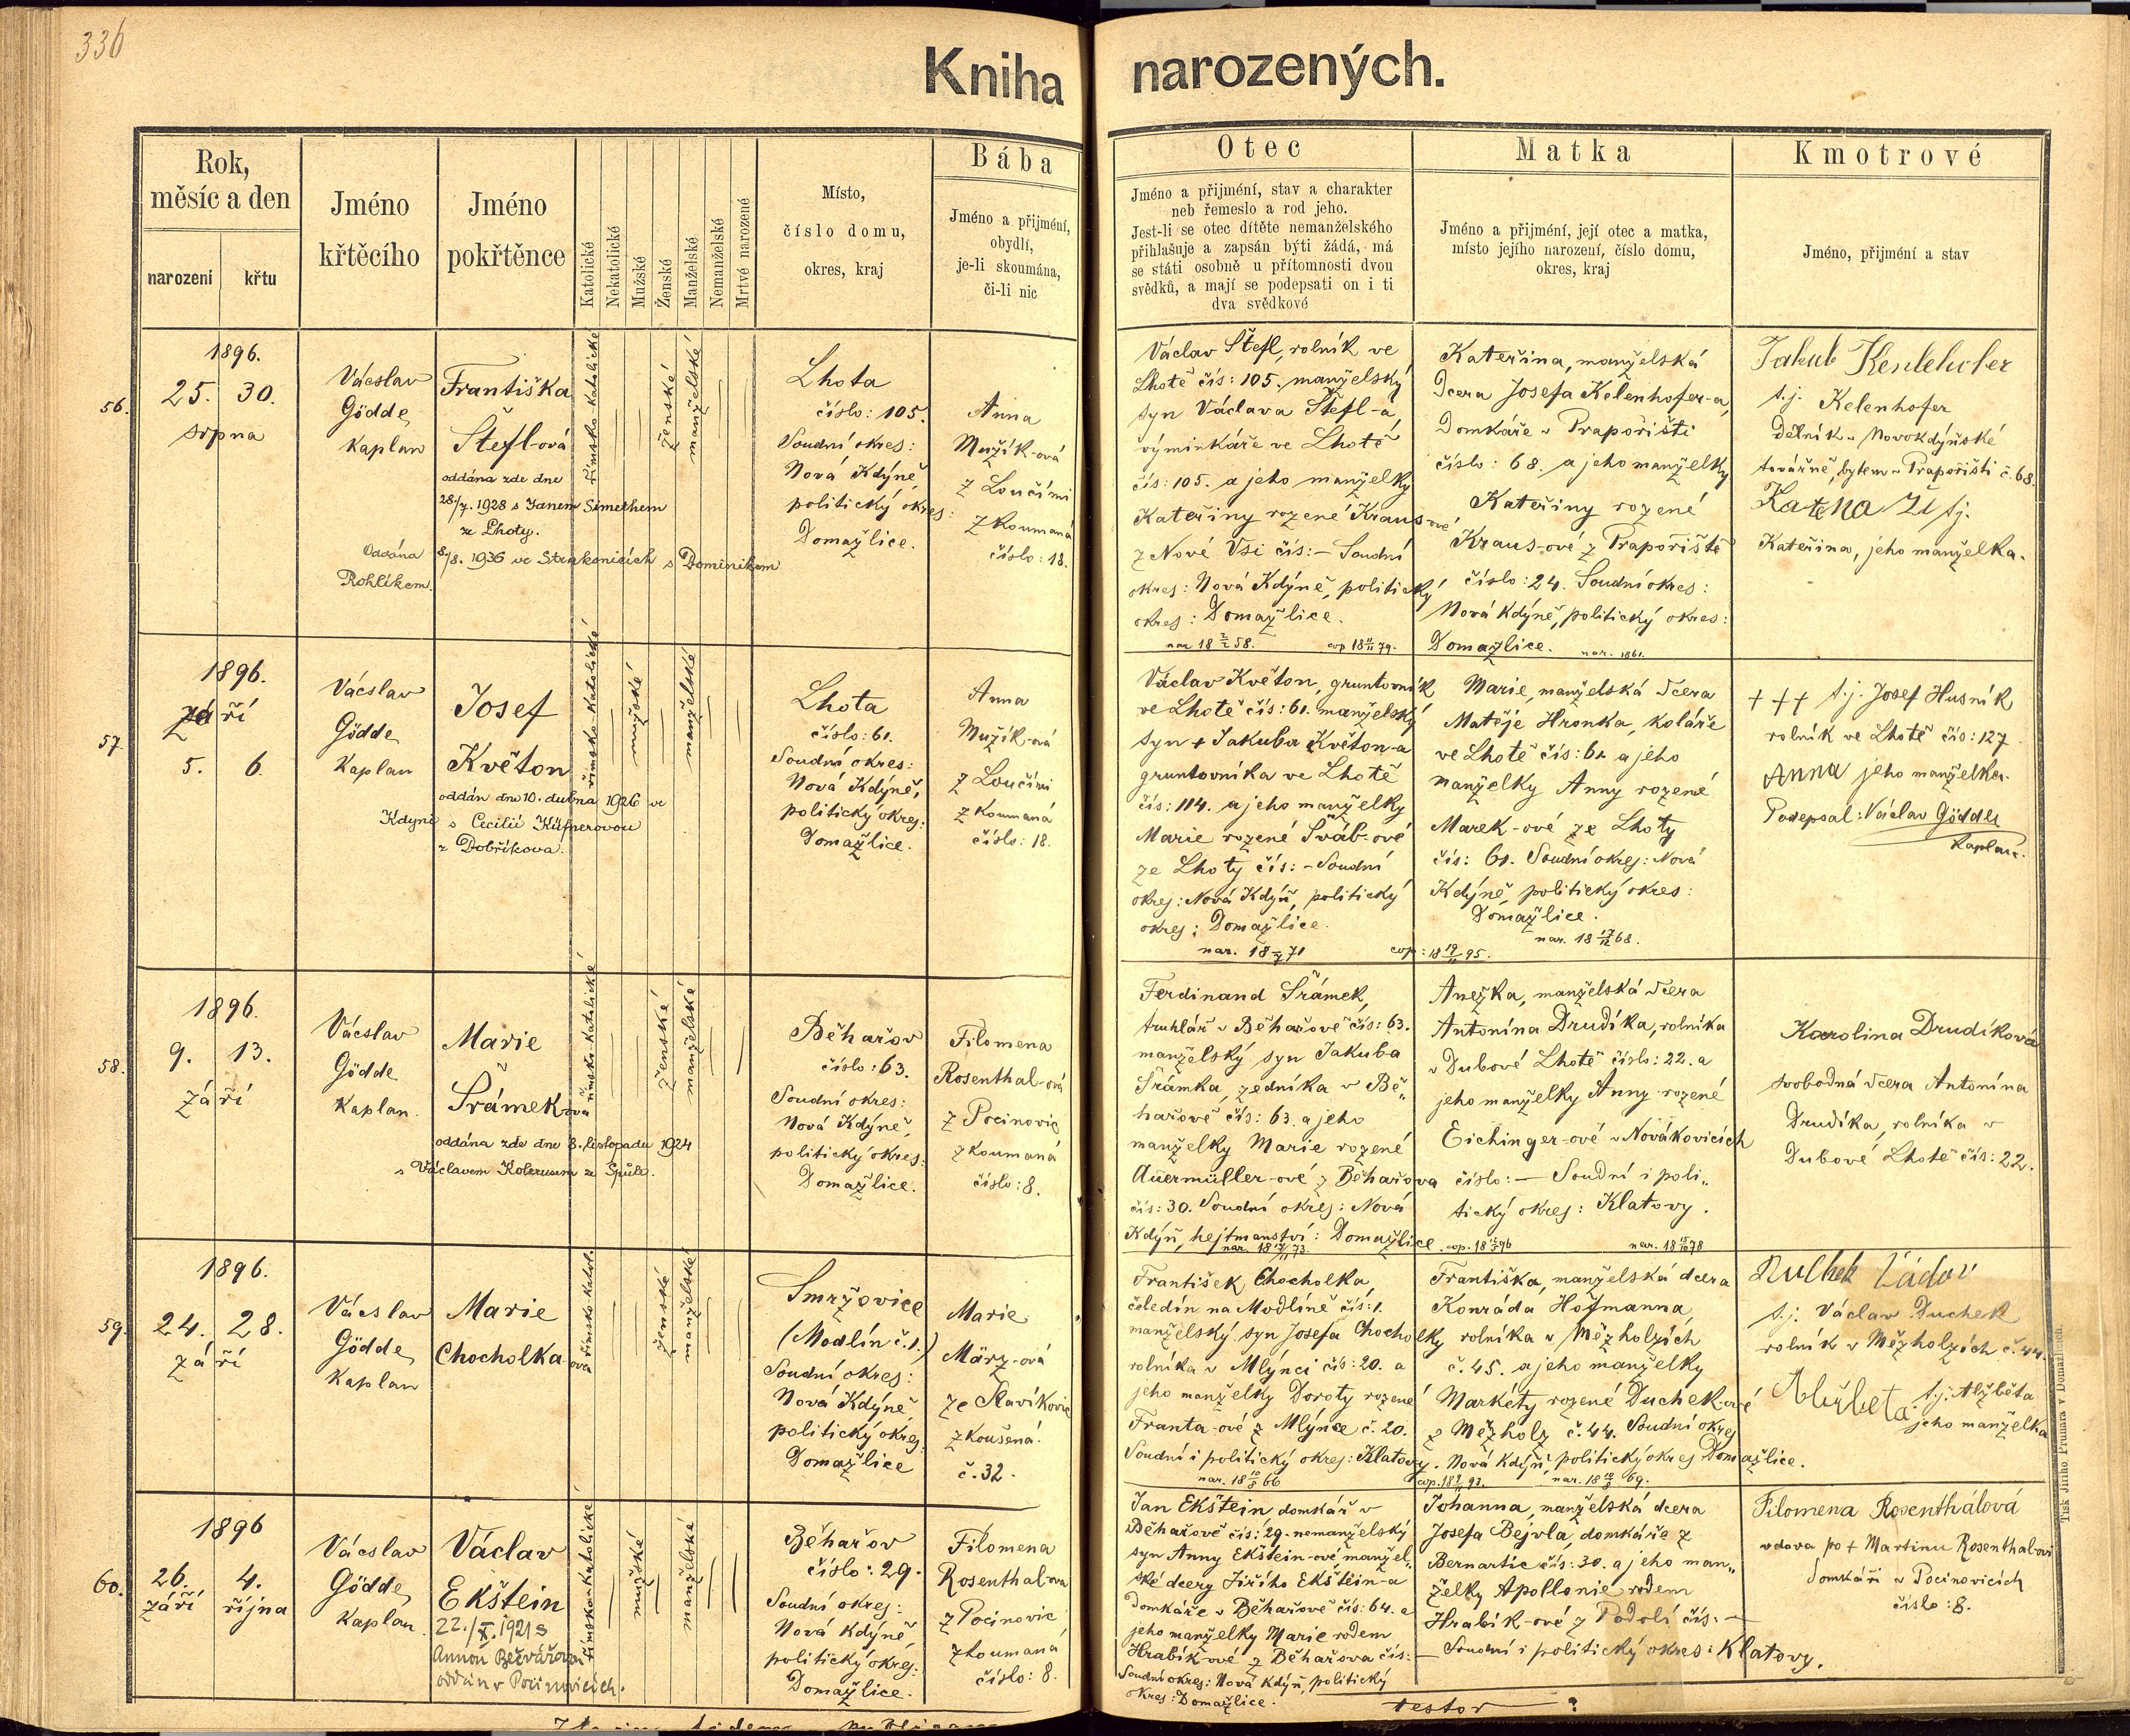 336
Kniha narozených.
Rok,
měsíc a den
narození
křtu
Jméno
křtěcího
Jméno
pokřtěnce
Katolické
Nekatolické
Mužské
Ženské
Manželské
Nemanželské
Mrtvě narozené
Místo,
číslo domu,
okres, kraj
Bába
Jméno a přijmení,
obydlí,
je-li skoumána,
či-li nic
Otec
Jméno a přijmení, stav a charakter
neb řemeslo a rod jeho.
Jest-li se otec dítěte nemanželského
přihlašuje a zapsán býti žádá, má
se státi osobně u přítomnosti dvou
svědků, a mají se podepsati on i ti
dva svědkové
Matka
Jméno a přijmení, její otec a matka,
místo jejího narození, číslo domu,
okres, kraj
Kmotrové
Jméno, přijmení a stav
56.
1896.
25. 30.
srpna
Vácslav
Gödde
Kaplan
Františka
Štefl-ová
oddána zde dne
28/7. 1928 s Janem Simethem
ze Lhoty.
Oddána 8/8. 1936 ve Strakonicích s Dominikem
Rohlíkem.
římsko-katolické
ženské
manželské
Lhota
číslo: 105.
Soudní okres:
Nová Kdýně,
politický okres:
Domažlice.
Anna
Mužík-ová
z Loučimi
zkoumaná
číslo: 18.
Václav Štefl, rolník ve
Lhotě čís: 105. manželský
syn Václava Štefl-a,
výminkáře ve Lhotě
čís: 105. a jeho manželky
Kateřiny rozené Kraus-ové
z Nové Vsi čís: – Soudní
okres: Nová Kdýně, politický
okres: Domažlice.
nar 18 2/2 58. cop 18 11/11 79.
Kateřina, manželská
dcera Josefa Kelenhofer-a,
Domkáře v Prapořišti
číslo: 68. a jeho manželky
Kateřiny rozené
Kraus-ové z Prapoříště
číslo: 24. Soudní okres:
Nová Kdýně, politický okres:
Domažlice. nar. 1861.
Jakub
t.j. Kelenhofer
Dělník v Novokdýňské
továrně, bytem v Prapořišti č. 68.
t.j.
Kateřina, jeho manželka.
57.
1896.
září
5. 6.
Vácslav
Gödde
Kaplan
Josef
Květon
oddán dne 10. dubna 1926 ve
Kdyni s Cecilií Küfnerovou
z Dobříkova.
římsko-katolické
mužské
manželské
Lhota
číslo: 61.
Soudní okres:
Nová Kdýně,
politický okres:
Domažlice.
Anna
Mužík-ová
z Loučimi
zkoumaná
číslo: 18.
Václav Květon, gruntovník
ve Lhotě čís: 61. manželský
syn + Jakuba Květon-a
gruntovníka ve Lhotě
čís: 114. a jeho manželky
Marie rozené Šváb-ové
ze Lhoty čís: – Soudní
okres: Nová Kdýň, politický
okres: Domažlice.
nar. 18 71 cop: 18 19/11 95.
Marie, manželská dcera
Matěje Hronka, koláře
ve Lhotě čís: 61. a jeho
manželky Anny rozené
Marek-ové ze Lhoty
čís: 61. Soudní okres: Nová
Kdýně, politický okres:
Domažlice.
nar. 18 17/12 68.
+++ t.j. Josef Husník
rolník ve Lhotě čís: 127
Anna jeho manželka.
Podepsal: Václav Gödde
Kaplan.
58.
1896.
9. 13.
září
Vácslav
Gödde
Kaplan.
Marie
Šrámek-ová
oddána zde dne 8. listopadu 1924
s Václavem ze Spůle.
římsko-katolické
ženské
manželské
Běhařov
číslo: 63.
Soudní okres:
Nová Kdýně,
politický okres:
Domažlice.
Filomena
Rosenthal-ová
z Pocinovic
zkoumaná
číslo: 8.
Ferdinand Šrámek,
truhlář v Běhařově čís: 63.
manželský syn Jakuba
Šrámka, zedníka v Bě„
hařově čís: 63. a jeho
manželky Marie rozené
Auermüller-ové z Běhařova
čís: 30. Soudní okres: Nová
Kdýň, hejtmanství: Domažlice.
nar. 18 73. cop. 18 96
Anežka, manželská dcera
Antonína Drudíka, rolníka
v Dubové Lhotě číslo: 22. a
jeho manželky Anny rozené
Eichinger-ové v Novákovicích
číslo: – Soudní i poli„
tický okres: Klatovy.
nar. 18 15/10 78
Karolina Drudíková
svobodná dcera Antonína
Drudíka, rolníka v
Dubové Lhotě čís: 22.
59.
1896.
24. 28.
září
Vácslav
Gödde
Kaplan
Marie
Chocholka-ová
římsko-katol.
ženské
manželské
Smržovice
(Modlín č. 1.)
Soudní okres:
Nová Kdýně
politický okres
Domažlice
Marie
März-ová
ze Slavíkovic
zkoušená.
č. 32.
František Chocholka,
čeledín na Modlíně čís: 1.
manželský syn Josefa Chocholky
rolníka v Mlýnci čís: 20. a
jeho manželky Doroty rozené
Franta-ové z Mlýnce č. 20.
Soudní i politický okres: Klatovy.
nar. 18 66 cop. 18 92.
Františka, manželská dcera
Konráda Hofmanna,
rolníka v Mězholzích
č. 45. a jeho manželky
Markéty rozené Duchek-ové
z Mězholz č. 44. Soudní okres
Nová Kdýň, politický okres Domažlice.
nar. 18 69.
t.j. Václav Duchek
rolník v Mězholzích č. 44.
t.j. Alžběta
jeho manželka
60.
1896
26. září
4. října
Vácslav
Gödde
Kaplan.
Václav
Ekštein
22./X. 1921 s
Annou Bečvářovou
oddán v Pocinovicích.
římsko-katolické
mužské
manželské
Běhařov
číslo: 29.
Soudní okres:
Nová Kdýně,
politický okres:
Domažlice.
Filomena
Rosenthal-ová
z Pocinovic
zkoumaná
číslo: 8.
Jan Ekštein domkář v
Běhařově čís: 29. nemanželský
syn Anny Ekštein-ové manžel„
ské dcery Jiřího Ekštein-a
Domkáře v Běhařově čís: 64. a
jeho manželky Marie rodem
Hrabík-ové z Běhařova čís: –
Soudní okres: Nová Kdýň, politický
okres: Domažlice.
Johanna, manželská dcera
Josefa Bejvla, domkáře z
Bernartic čís: 30. a jeho man„
želky Apollonie rodem
Hrabík-ové z Podolí čís: –
Soudní i politický okres: Klatovy.
Filomena Rosenthálová
vdova po + Martinu Rosenthal-ovi
Domkáři v Pocinovicích
číslo: 8.
testor ?
Tisk Jiřího Prunara v Domažlicích.